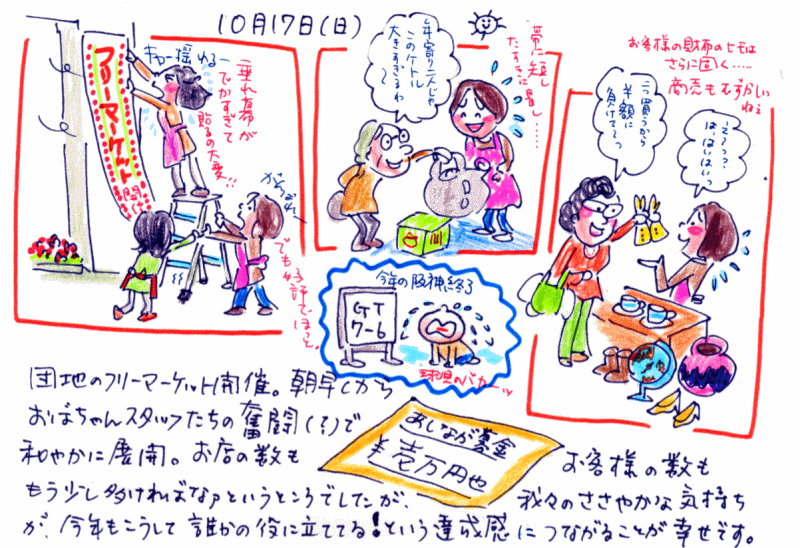 10月17日(日)
フリーマーケット
開催
キャー揺れるー
垂れ幕が
でかすぎて
貼るの大変!!
がんばれー
でも好評でほっ。
年寄り二人じゃ
このケトル
大きすぎるわ
〜
帯に短し
たすきに長し……
お客様の財布のヒモは
さらに固く……
商売もむずかしい
ねぇ
二つ買うから
半額に
負けてーっ
えーっ?
はいはいはいっ
今年の阪神終了
GT
7-6
球児のバカーッ
団地のフリーマーケット開催。朝早くから
おばちゃんスタッフたちの奮闘(?)で
和やかに展開。お店の数も
あしなが募金
¥壱万円也
お客様の数も
もう少し多ければなァというところでしたが、我々のささやかな気持ち
が、今年もこうして誰かの役に立ててる!という達成感につながることが幸せです。